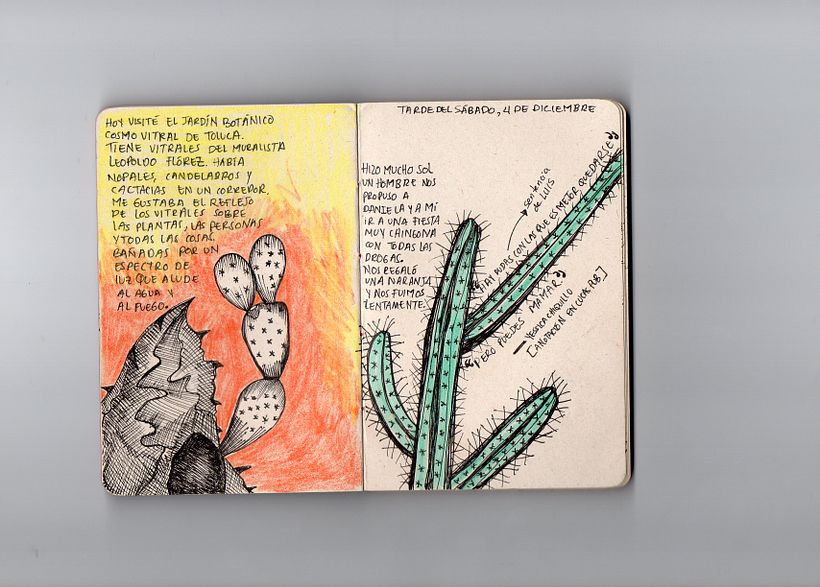 HOY VISITÉ EL JARDÍN BOTÁNICO
COSMO VITRAL DE TOLUCA.
TIENE VITRALES DEL MURALISTA
LEOPOLDO FLÓREZ. HABÍA
NOPALES, CANDELABROS Y
CACTACIAS EN UN CORREDOR.
ME GUSTABA EL REFLEJO
DE LOS VITRALES SOBRE
LAS PLANTAS, LAS PERSONAS
Y TODAS LAS COSAS.
BAÑADAS POR UN
ESPECTRO DE
LUZ QUE ALUDE
AL AGUA Y
AL FUEGO.
TARDE DEL SÁBADO, 4 DE DICIEMBRE
HIZO MUCHO SOL
UN HOMBRE NOS
PROPUSO A
DANIELA Y A MÍ
IR A UNA FIESTA
MUY CHINGONA
CON TODAS LAS
DROGAS.
NOS REGALÓ
UNA NARANJA
Y NOS FUIMOS
LENTAMENTE.
sentencia
de LUIS
"HAY DUDAS CON LAS QUE ES MEJOR QUEDARSE"
"PERO PUEDES MAMAR"